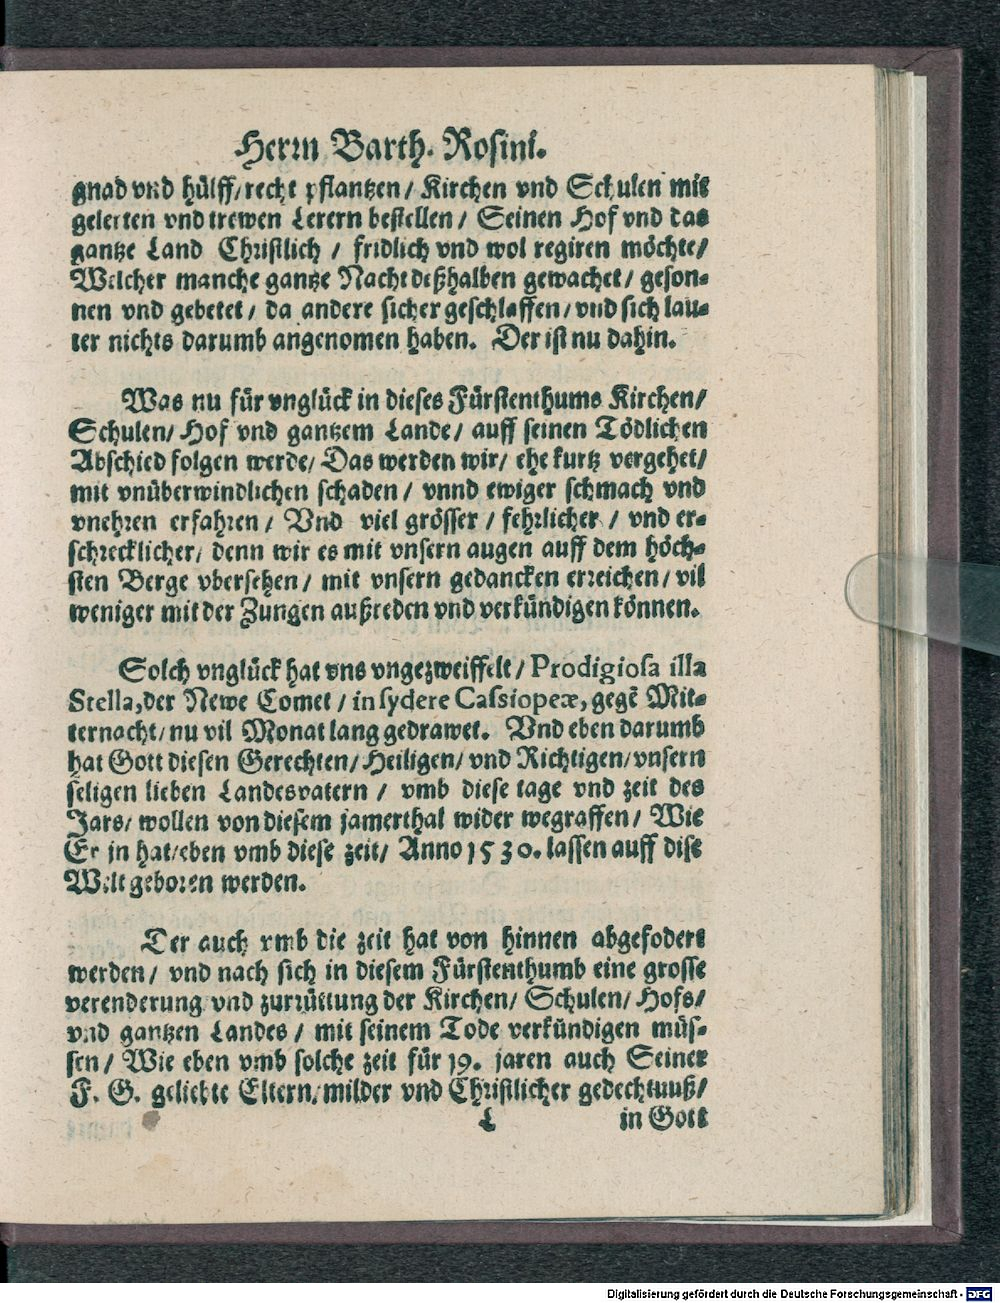 Herrn Barth. Rosini.
gnad vnd hülff/ recht pflantzen/ Kirchen vnd Schulen mit
gelerten vnd trewen Lerern bestellen/ Seinen Hof vnd das
gantze Land Christlich / fridlich vnd wol regiren möchte/
Welcher manche gantze Nacht deßhalben gewachet/ geson-
nen vnd gebetet/ da andere sicher geschlaffen/ vnd sich lau-
ter nichts darumb angenomen haben. Der ist nu dahin.
Was nu für vnglück in dieses Fürstenthums Kirchen/
Schulen/ Hof vnd gantzem Lande/ auff seinen Tödlichen
Abschied folgen werde/ Das werden wir/ ehe kurtz vergehet/
mit vnüberwindlichen schaden / vnnd ewiger schmach vnd
vnehren erfahren / Vnd viel grösser / fehrlicher / vnd er-
schrecklicher/ denn wir es mit vnsern augen auff dem höch-
sten Berge vbersehen / mit vnsern gedancken erreichen/ vil
weniger mit der Zungen außreden vnd verkündigen können.
Solch vnglück hat vns vngezweiffelt/ Prodigiosa illa
Stella, der Newe Comet / in sydere Cassiopeæ, gegē Mit-
ternacht/ nu vil Monat lang gedrawet. Vnd eben darumb
hat Gott diesen Gerechten/ Heiligen/ vnd Richtigen/ vnsern
seligen lieben Landesvatern / vmb diese tage vnd zeit des
Jars/ wollen von diesem jamerthal wider wegraffen/ Wie
Er jn hat/ eben vmb diese zeit/ Anno 1530. lassen auff dise
Welt geboren werden.
Der auch vmb die zeit hat von hinnen abgefodert
werden / vnd nach sich in diesem Fürstenthumb eine grosse
verenderung vnd zurrüttung der Kirchen/ Schulen/ Hofs/
vnd gantzen Landes / mit seinem Tode verkündigen müs-
sen / Wie eben vmb solche zeit für 19. jaren auch Seiner
F. G. geliebte Eltern/ milder vnd Christlicher gedechtnuß/
L in Gott
Digitalisierung gefördert durch die Deutsche Forschungsgemeinschaft - DFG